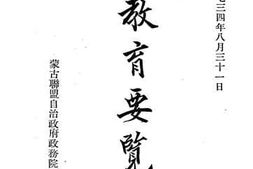 七三四年八月三十一日
教育要覧
蒙古聯盟自治政府政務院